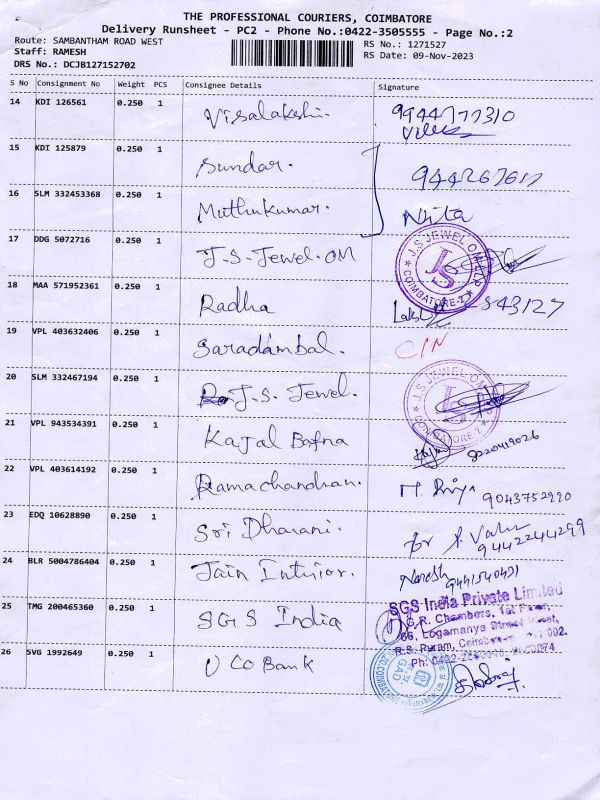 THE PROFESSIONAL COURIERS, COIMBATORE
Delivery Runsheet - PC2 - Phone No.:0422-3505555 - Page No.:2
Route: SAMBANTHAM ROAD WEST
Staff: RAMESH
RS No.: 1271527
DRS No.: DCJB127152702
RS Date: 09-Nov-2023
S No Consignment No Weight PCS Consignee Details Signature
14 KDI 126561 0.250 1 Visalakshi. 9944777310
15 KDI 125879 0.250 1 Sundar.
16 SLM 332453368 0.250 1 Muthukumar. Nita
17 DDG 5072716 0.250 1 J.S. Jewel.OM
18 MAA 571952361 0.250 1 Radha 843127
19 VPL 403632406 0.250 1 Saradambal. CIN
20 SLM 332467194 0.250 1 J.S. Jewel.
21 VPL 943534391 0.250 1 Kajal Bafna 8220419026
22 VPL 403614192 0.250 1 Ramachandran. 9043752990
23 EDQ 10628890 0.250 1 Sri Dharani. for 9442244299
24 BLR 5004786404 0.250 1 Jain Interior. Naresh 9441540431
25 TMG 200465360 0.250 1 SGS India SGS India Private Limited
G.R. Chambers, 1st Floor,
66, Logamanya Street West,
R.S. Puram, Coimbatore 002.
26 SVG 1992649 0.250 1 UCO Bank